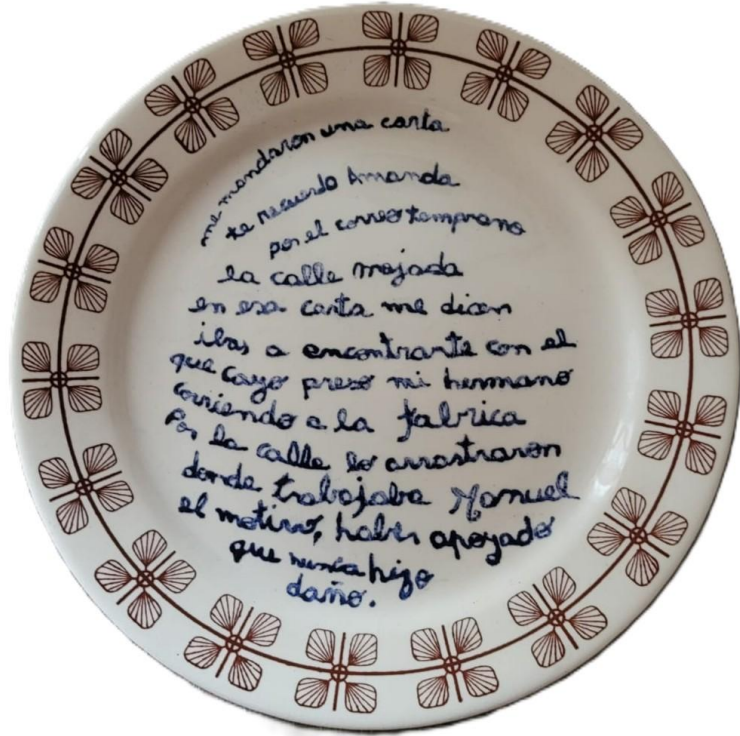 me mandaron una carta
te recuerdo Amanda
por el correo temprano
la calle mojada
en esa carta me dicen
ibas a encontrarte con el
que cayo preso mi hermano
corriendo a la fabrica
Por la calle lo arrastraron
donde trabajaba Manuel
el motivo, haber apoyado
que nunca hizo
daño.